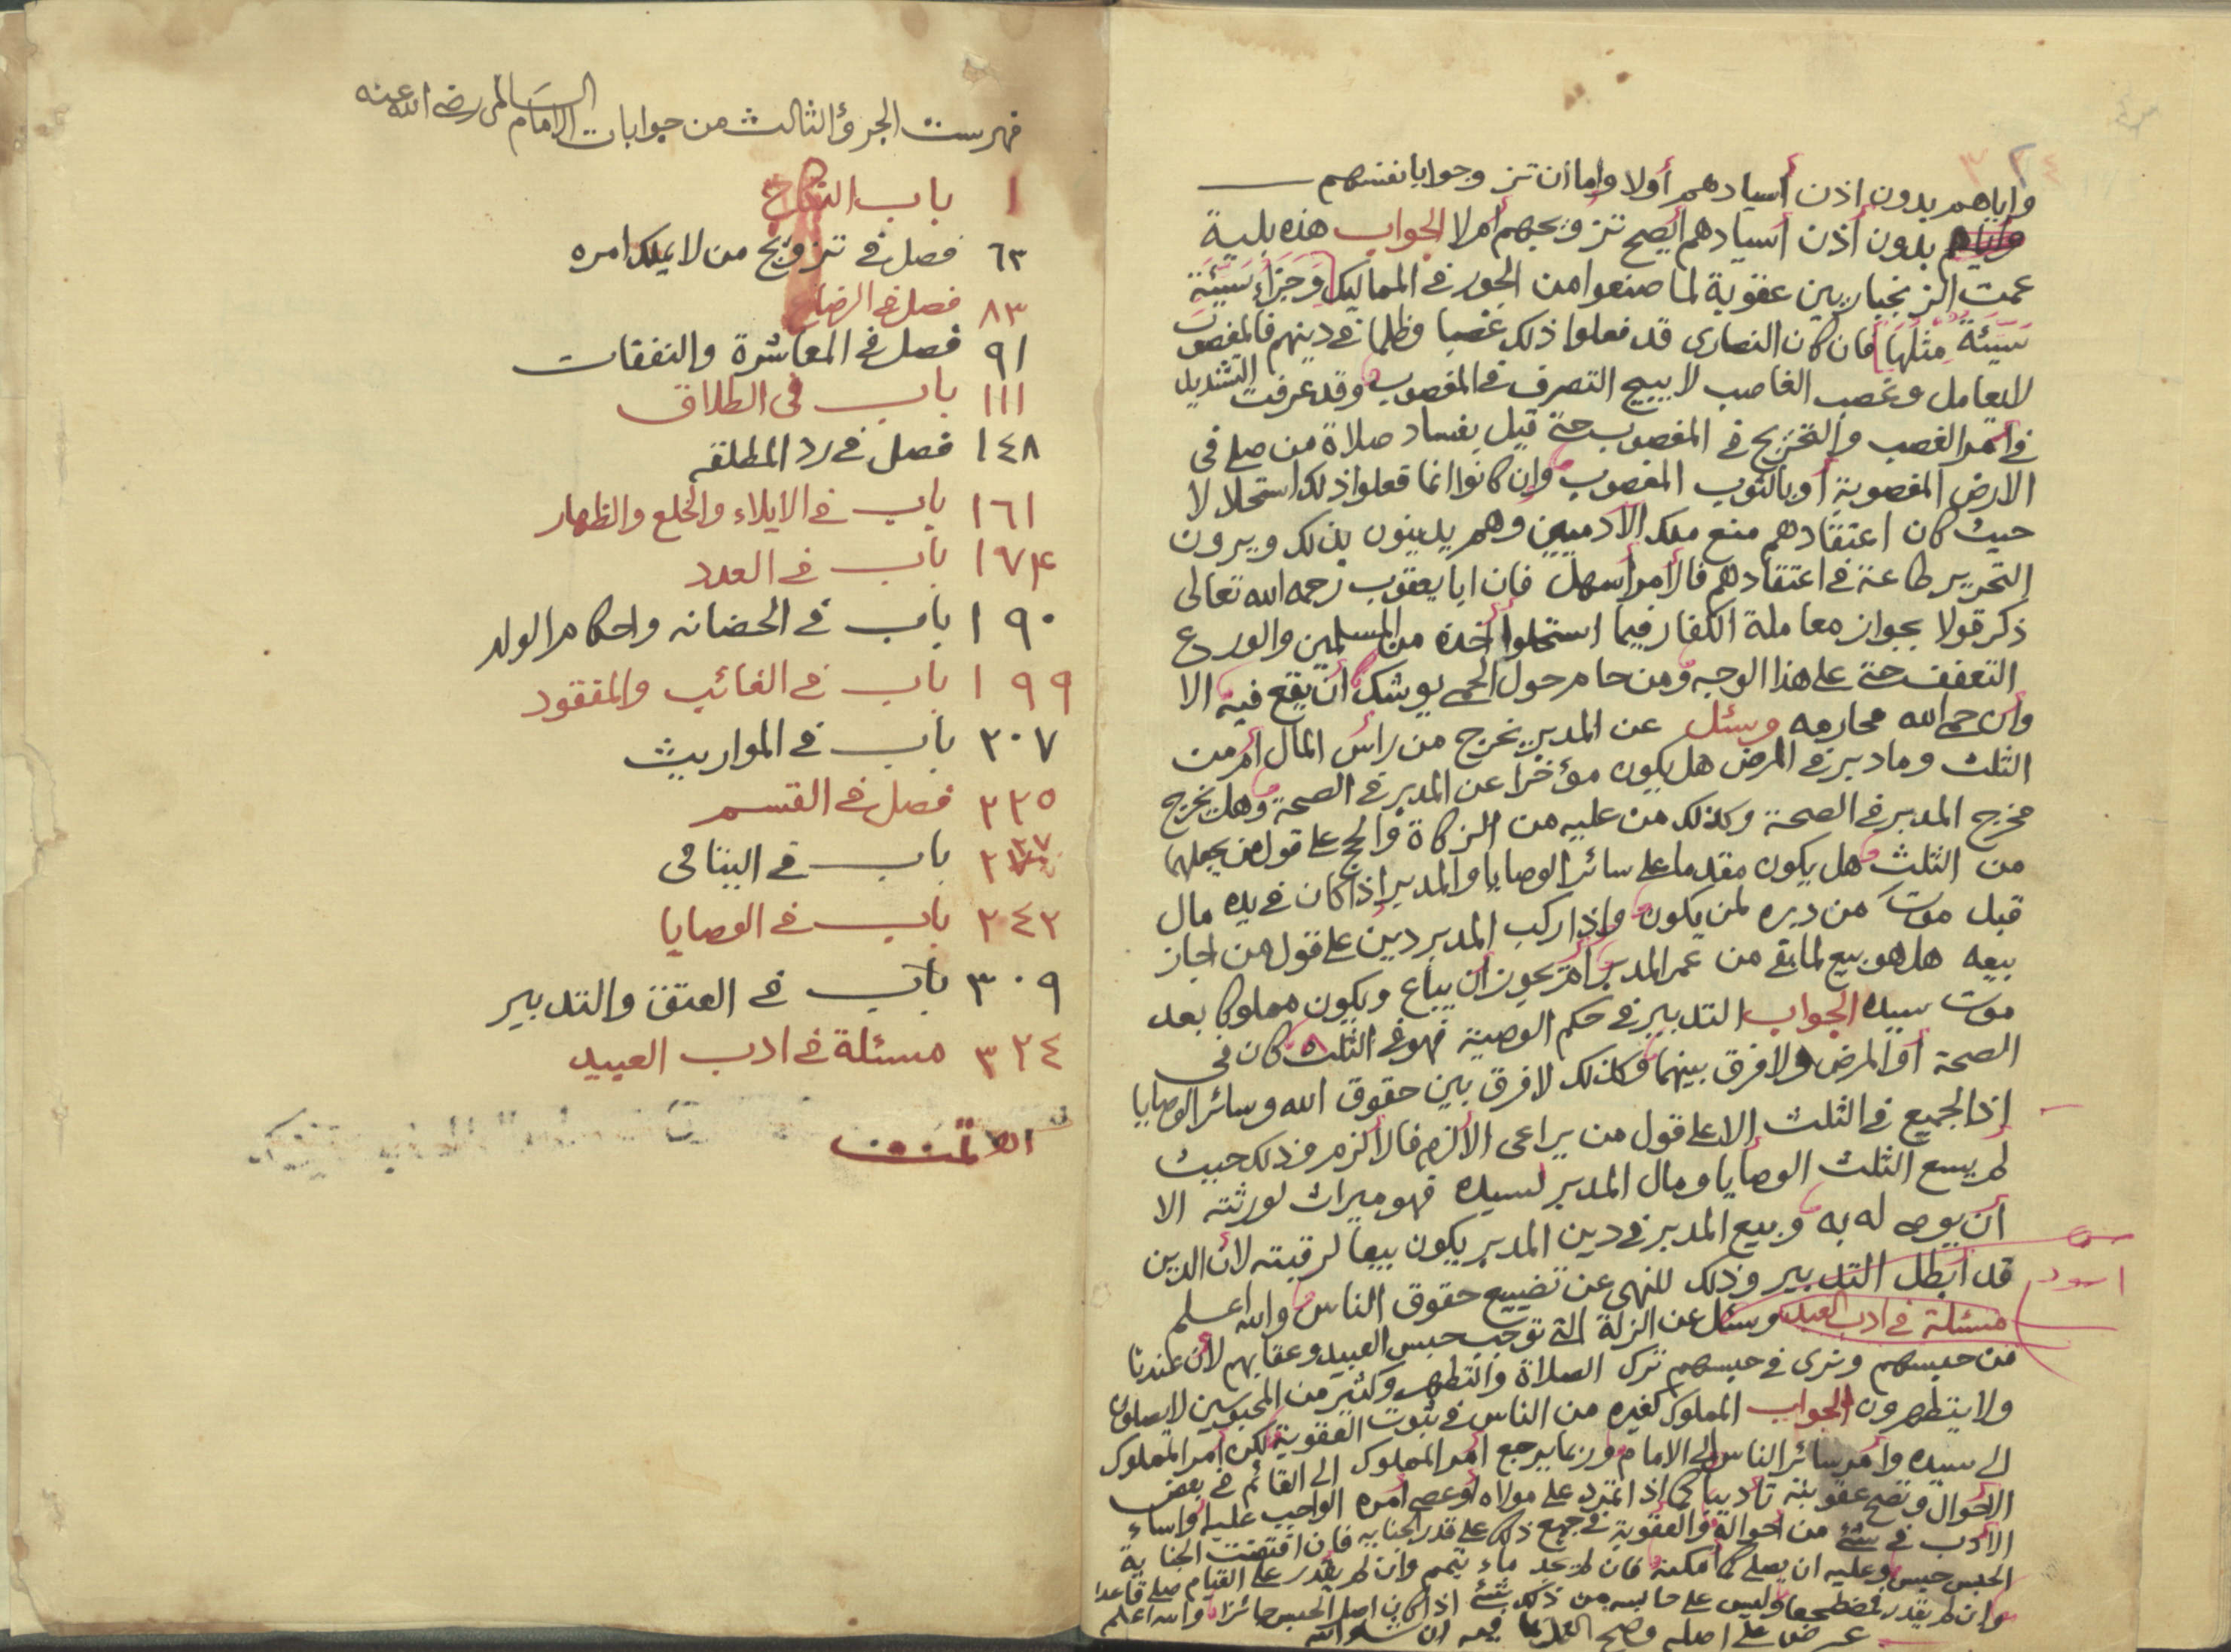 ٣٢٤
واياهم بدون اذن أسيادهم أولا واما أن تزوجوا بانفسهم
بدون أذن أسيادهم أيصح تزويجهم أم لا الجواب هذه بلية
عمت الزنجباريين عقوبة لما صنعوا من الجور في المماليك وَجَزَاء سَيّئَةٍ
سَيّئَة مِثلُهَا فان كان النصارى قد فعلوا ذلك غصبا وظلما في دينهم فالمغصوب
لا يعامل وغصب الغاصب لا يبيح التصرف في المغصوب وقد عرفت التشديد
في أمر الغصب والتحريج في المغصوب حتى قيل بفساد صلاة من صلى في
الارض المغصوبة أو بالثوب المغصوب وإن كانوا انما فعلوا ذلك استحلالا
حيث كان اعتقادهم منع ملك الآدميين وهم يدينون بذلك ويرون
التحرير طاعة في اعتقادهم فالأمر أسهل فان ابا يعقوب رحمه الله تعالى
ذكر قولا بجواز معاملة الكفار فيما استحلوا أخذه من المسلمين والورع
التعفف حتى على هذا الوجه ومن حام حول الحمى يوشك أن يقع فيه الا
وان حمى الله محارمه وسئل عن المدبر يخرج من رأس المال أم من
الثلث وما دبر في المرض هل يكون مؤخرا عن المدبر في الصحة وهل يخرج
مخرج المدبر في الصحة وكذلك من عليه من الزكاة والحج على قول من يجعلهما
من الثلث هل يكون مقدما على سائر الوصايا والمدبر إذا كان في يده مال
قبل موت من دبره لمن يكون وإذا ركب المدبر دين على قول من اجاز
بيعه هل هو بيع لما بقي من عمر المدبر أم يجوز أن يباع ويكون مملوكا بعد
موت سيده الجواب التدبير في حكم الوصية فهو في الثلث كان في
الصحة أو المرض ولا فرق بينهما وكذلك لا فرق بين حقوق الله وسائر الوصايا
إذ الجميع في الثلث إلا على قول من يراعى الألزم فالألزم وذلك حيث
لم يسع الثلث الوصايا ومال المدبر لسيده فهو ميراث لورثته الا
أن يوصى له به وبيع المدبر في دين المدبر يكون بيعا لرقبته لأن الدين
قد أبطل التدبير وذلك للنهي عن تضييع حقوق الناس والله اعلم
اسود
مسئلة في ادب العبيد وسئل عن الزلة التي توجب حبس العبيد وعقابهم لأن عندنا
من حبسهم ونرى في حبسهم ترك الصلاة والتطهر وكثير من المحبوسين لا يصلون
ولا يتطهرون الجواب المملوك كغيره من الناس في ثبوت العقوبة لكن أمر المملوك
إلى سيده وأمر سائر الناس إلى الامام وربما يرجع أمر المملوك إلى القائم في بعض
الأحوال وتصح عقوبته تأديبا كما إذا تمرد على مولاه أو عصى أمره الواجب عليه أو أساء
الأدب في شئ من أحواله والعقوبة في جميع ذلك على قدر الجناية فان اقتضت الجناية
الحبس حبس وعليه ان يصلي كما أمكنه فان لم يجد ماء تيمم وان لم يقدر على القيام صلى قاعدا
وان لم يقدر فمضطجعا وليس على حابسه من ذلك شئ اذا كان اصل الحبس جائزا والله اعلم
عرض على اصله وصح ان شاء الله
فهرست الجزؤ الثالث من جوابات الامام السالمي رضي الله عنه
١ باب النكاح
٦٣ فصل في تزويج من لا يملك امره
٨٣ فصل في الرضاع
٩١ فصل في المعاشرة والنفقات
١١١ باب في الطلاق
١٤٨ فصل في رد المطلقه
١٦١ باب في الايلاء والخلع والظهار
١٧٤ باب في العدد
١٩٠ باب في الحضانه واحكام الولد
١٩٩ باب في الغائب والمفقود
٢٠٧ باب في المواريث
٢٢٥ فصل في القسم
٢٣٧ باب في اليتامى
٢٤٢ باب في الوصايا
٣٠٩ باب في العتق والتدبير
٣٢٤ مسئلة في ادب العبيد